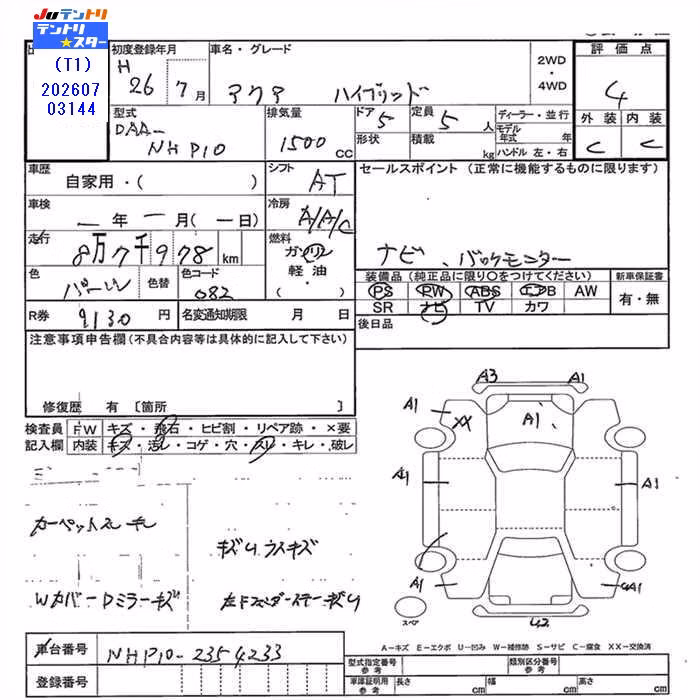 JUテントリ
テントリ
★スター
(T1)
202607
03144
初度登録年月
H 26年 7月
車名・グレード
アクア ハイブリッド
2WD
・
4WD
評価点
4
外装 内装
C C
型式
DAA-
NHP10
排気量
1500 cc
ドア 5
形状
定員 5 人
積載 kg
ディーラー・並行
モデル年式 年
ハンドル 左・右
車歴
自家用・( )
シフト
AT
車検
ー年ー月(ー日)
冷房
A/A/C
走行
8万7千978km
燃料
ガソリン
軽油・
( )
色
パール
色替
色コード
082
R券
9130円
名変通知期限 月 日
セールスポイント (正常に機能するものに限ります)
ナビ、バックモニター
装備品(純正品に限り○をつけてください)
PS PW ABS エアB AW
SR ナビ TV カワ
新車保証書
有・無
後日品
注意事項申告欄(不具合内容等は具体的に記入して下さい)
修復歴 有〔箇所 〕
検査員
記入欄
FW キズ・飛石・ヒビ割・リペア跡・×要
内装 キズ・汚レ・コゲ・穴・スレ・キレ・破レ
カーペットスレ キレ
WカバーDミラーキズ
キズUラスキズ
左Fフェンダーステーキズ
A3 A1
A1 XX A1 A1
A1 A1
A1 A1
U2
スペア
A-キズ E-エクボ U-凹み W-補修跡 S-サビ C-腐食 XX-交換済
車台番号 NHP10-2354233
登録番号
型式指定番号 類別区分番号
車庫証明用参考 長さ cm 幅 cm 高さ cm